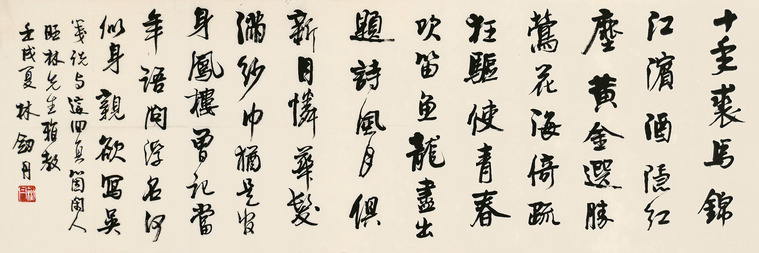 十年裘馬錦
江濱酒隱紅
塵黃金選勝
鶯花海倚疏
狂驅使青春
吹笛魚龍盡出
題詩風月俱
新自憐華髮
滿紗巾猶是官
身鳳樓曾記當
年語問浮名何
似身親欲寫吳
箋說与這回真箇閑人
旺林先生雅教
壬戌夏林劍丹